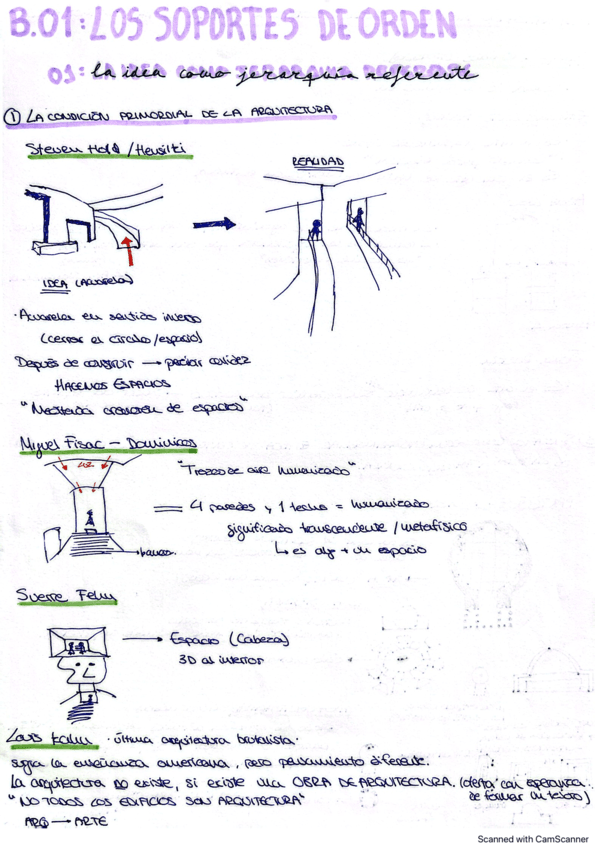 B.01: LOS SOPORTES DE ORDEN
01: la idea como jerarquía referente
① LA CONDICIÓN PRIMORDIAL DE LA ARQUITECTURA
Steven Holl / Helsinki
REALIDAD
IDEA (Acuarela)
· Acuarela en sentido inverso
(cerrar el círculo/espacio)
Después de construir → calidez
HACEMOS ESPACIOS
creación de espacios"
Miguel Fisac - Dominicos
LUZ
"Trozo de aire humanizado"
4 paredes y 1 techo = humanizado
significado transcendente / metafísico
↳ es algo + un espacio
→ bancos
Sverre Fehn
→ Espacio (Cabeza)
3D al interior
Louis Kahn · última arquitectura brutalista ·
la enseñanza americana, pero pensamiento diferente.
La arquitectura no existe, si existe una OBRA DE ARQUITECTURA. (oferta con esperanza
"NO TODOS LOS EDIFICIOS SON ARQUITECTURA" de formar un tesoro)
ARQ → ARTE
Scanned with CamScanner